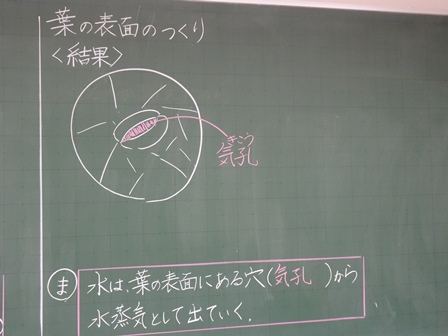 葉の表面のつくり
<結果>
きこう
気孔
ま 水は、葉の表面にある穴(気孔)から
水蒸気として出ていく。